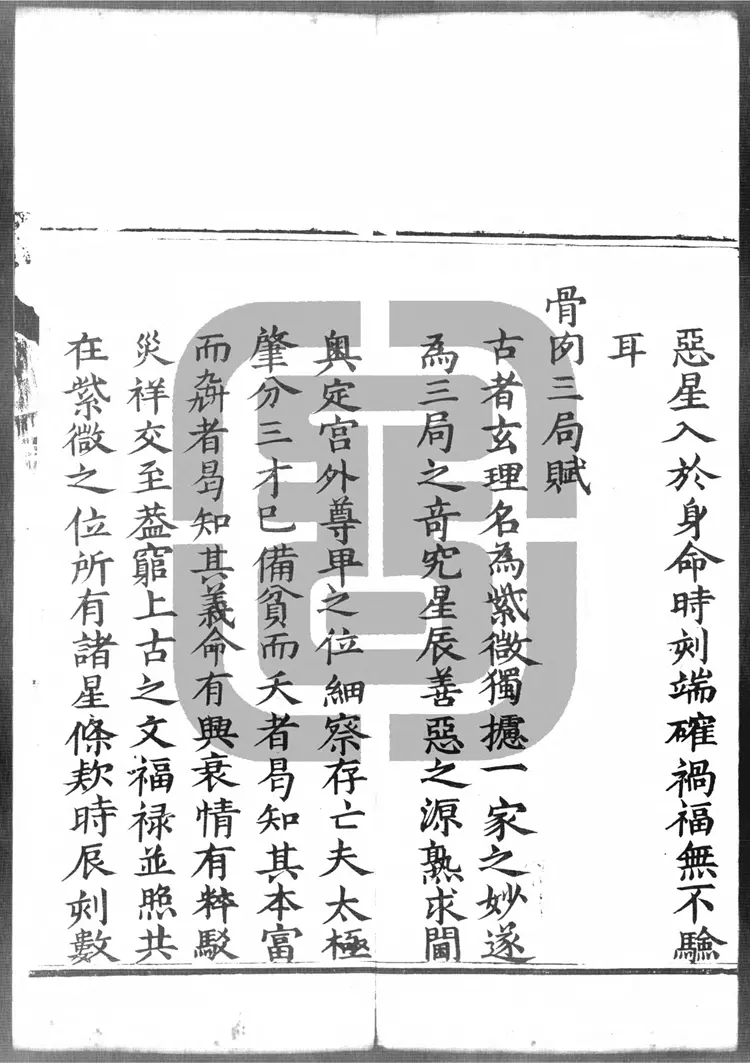 惡星入於身命時刻端確禍福無不驗
耳
骨肉三局賦
古者玄理名為紫微獨攄一家之妙遂
為三局之竒究星辰善惡之源熟求閫
奧定宫外尊甲之位細察存亡夫太極
肇分三才已備貧而夭者曷知其本富
而者曷知其義命有興衰情有粹駁
災祥交至葢窮上古之文福禄並照共
在紫微之位所有諸星條欵時辰刻數